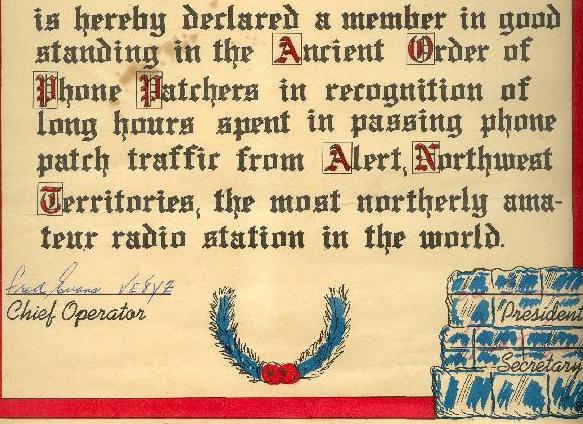 is hereby declared a member in good
standing in the Ancient Order of
Phone Patchers in recognition of
long hours spent in passing phone
patch traffic from Alert, Northwest
Territories, the most northerly ama-
teur radio station in the world.
Fred Evans
Chief Operator
President
Secretary